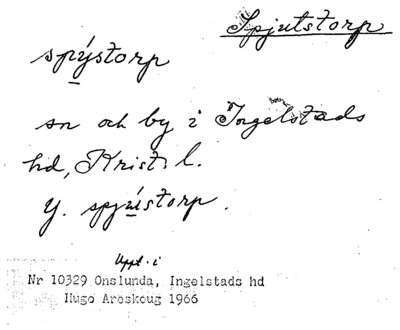 Spjutstorp
spýstorp
sn och by i Ingelstads
hd, Krist. l.
Y. spjústorp.
Uppl. i
Nr 10329 Onslunda, Ingelstads hd
Hugo Areskoug 1966